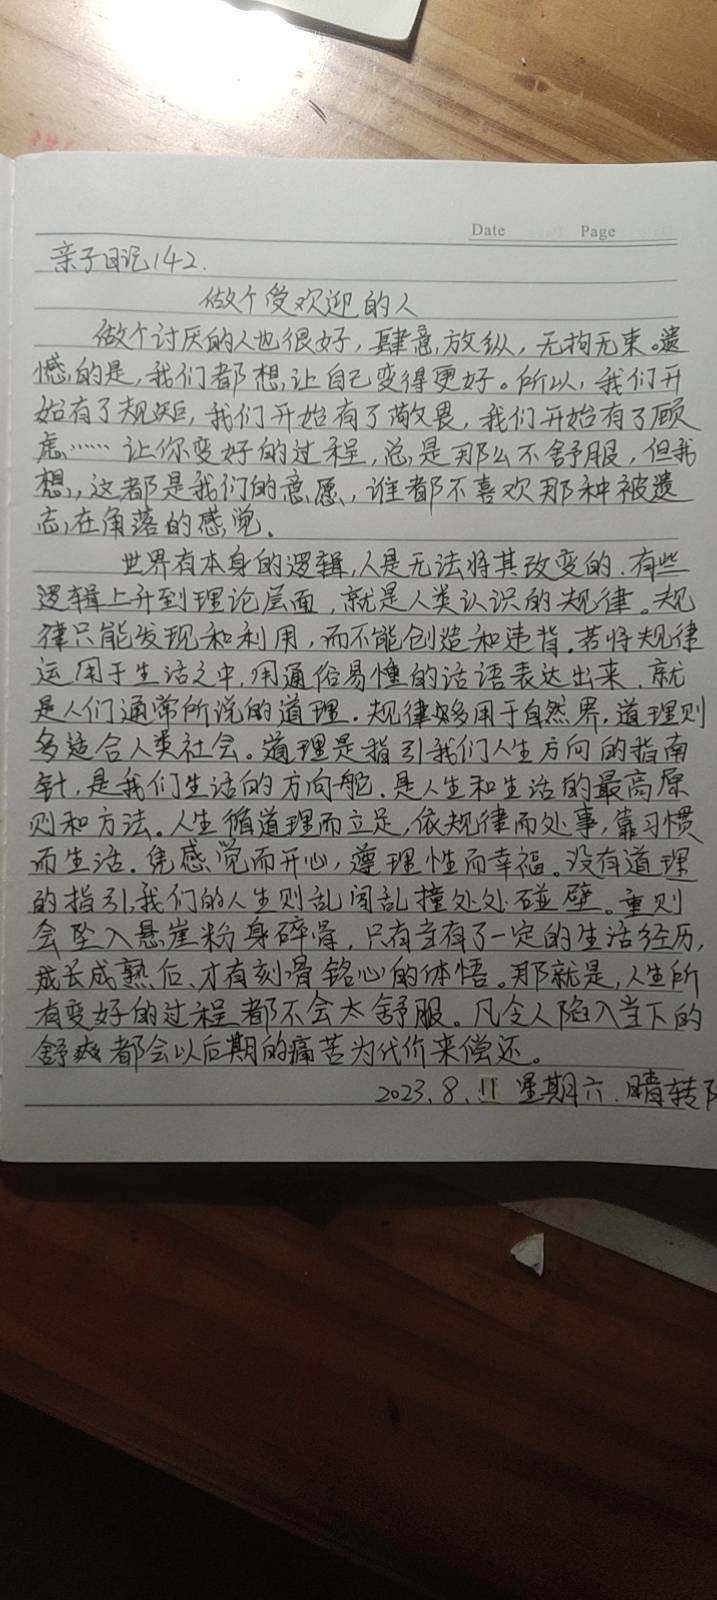 Date Page
亲子日记142.
做个受欢迎的人
做个讨厌的人也很好，肆意放纵，无拘无束。遗
憾的是，我们都想让自己变得更好。所以，我们开
始有了规矩，我们开始有了敬畏，我们开始有了顾
虑……让你变好的过程，总是那么不舒服，但我
想，这都是我们的意愿，谁都不喜欢那种被遗
忘在角落的感觉。
世界有本身的逻辑，人是无法将其改变的.有些
逻辑上升到理论层面，就是人类认识的规律。规
律只能发现和利用，而不能创造和违背。若将规律
运用于生活之中，用通俗易懂的话语表达出来.就
是人们通常所说的道理.规律多用于自然界，道理则
多适合人类社会。道理是指引我们人生方向的指南
针，是我们生活的方向舵.是人生和生活的最高原
则和方法。人生循道理而立足，依规律而处事，靠习惯
而生活.凭感觉而开心，遵理性而幸福。没有道理
的指引，我们的人生则乱闯乱撞处处碰壁。重则
会坠入悬崖粉身碎骨，只有当有了一定的生活经历，
成长成熟后、才有刻骨铭心的体悟。那就是，人生所
有变好的过程都不会太舒服。凡令人陷入当下的
舒爽都会以后期的痛苦为代价来偿还。
2023.8. 星期六.晴转